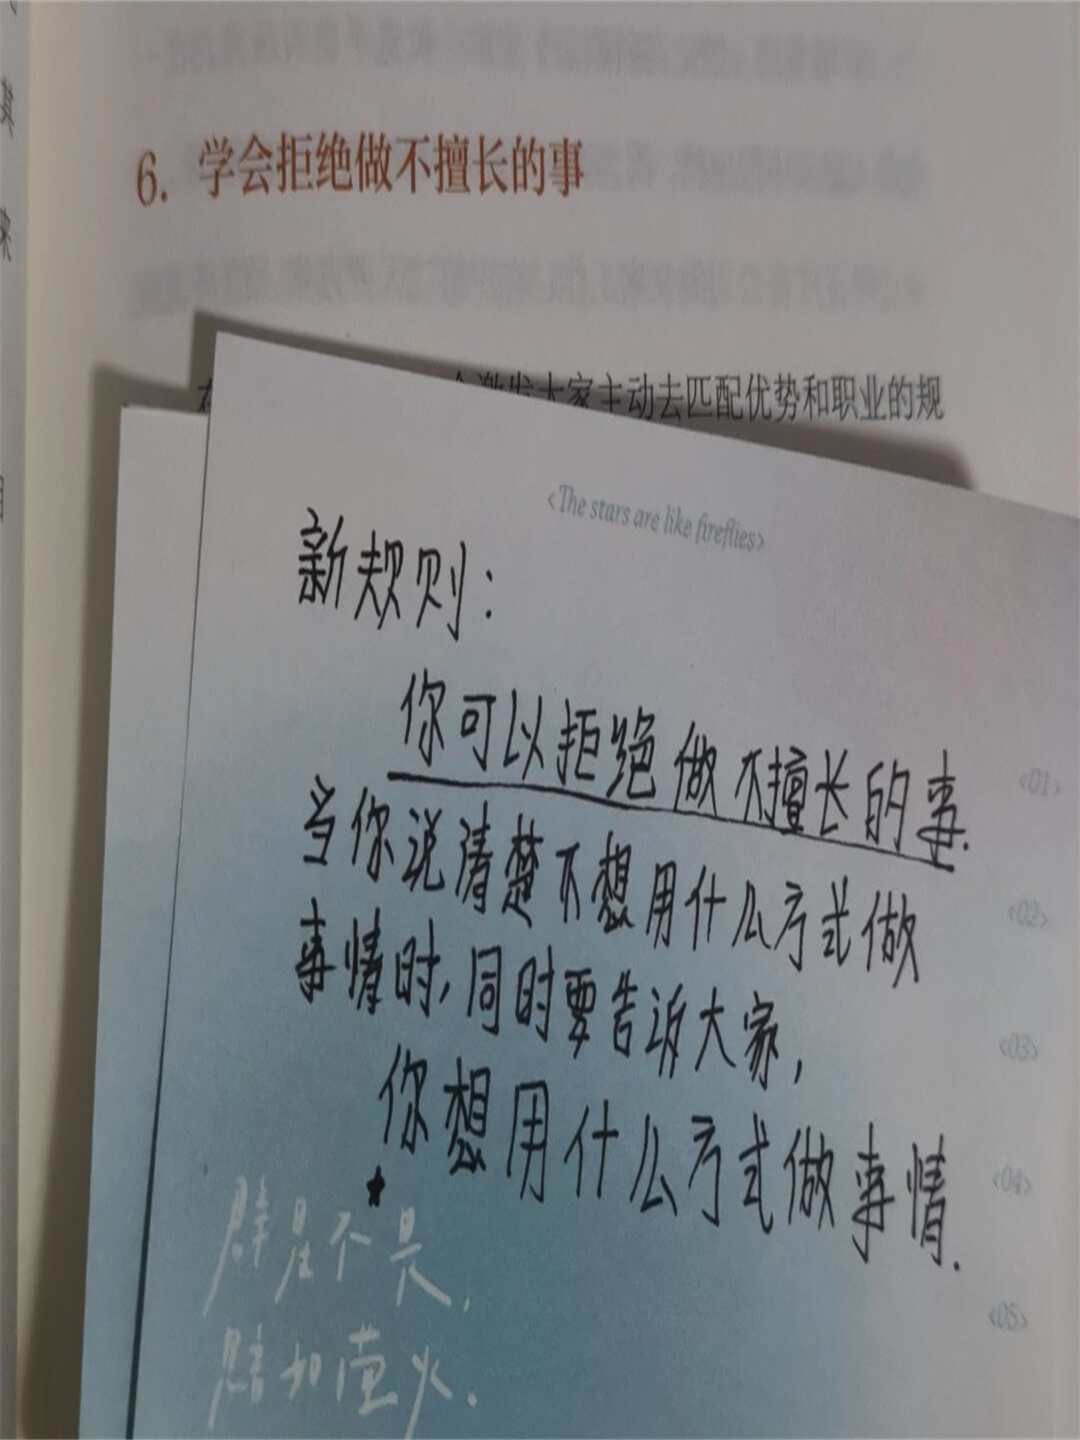 其
来
6. 学会拒绝做不擅长的事
激发大家主动去匹配优势和职业的规
<The stars are like fireflies>
新规则：
你可以拒绝做不擅长的事.
当你说清楚不想用什么方式做
事情时,同时要告诉大家,
你想用什么方式做事情.
<01>
<02>
<03>
<04>
<05>
群星不是,
如萤火.